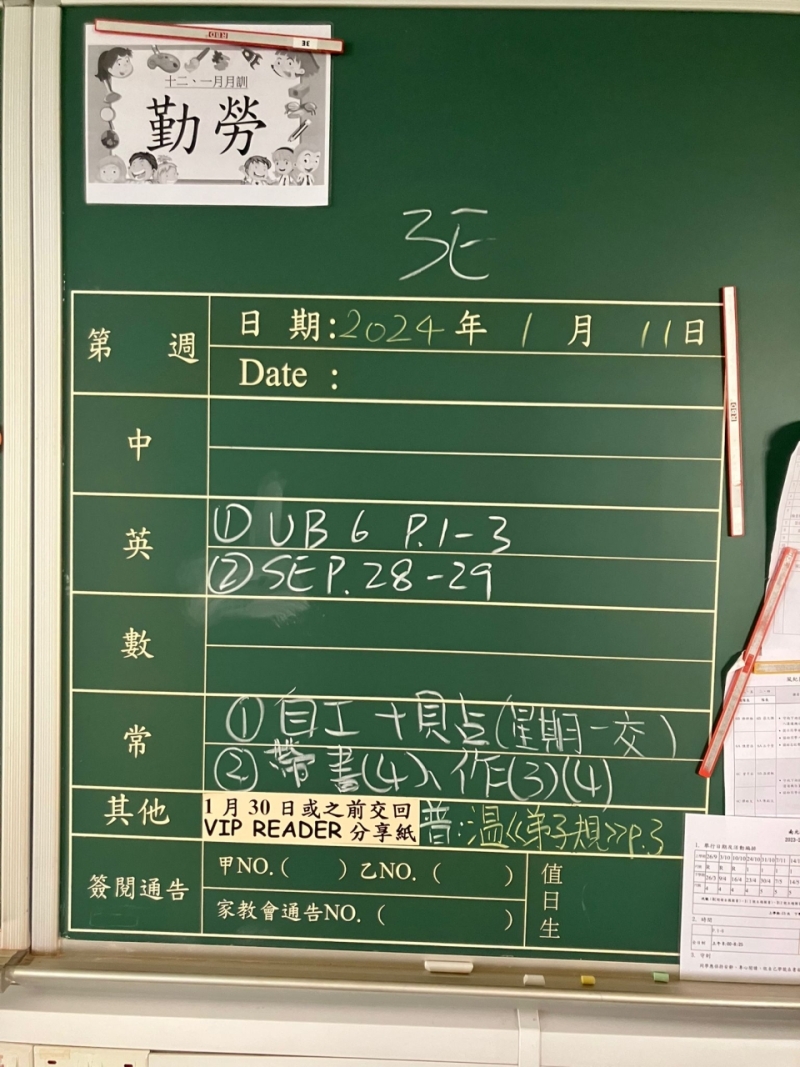 十二、一月月訓
勤勞
3E
第 週
日 期:2024年 1 月 11日
Date :
中
英
① UB 6 P.1-3
② SE P.28-29
數
常
① 自工 + 貝点(星期一交)
② 帶書(4)、作(3)(4)
其他
1月30日或之前交回
VIP READER 分享紙
普:溫《弟子規》P.3
簽閱通告
甲NO.( ) 乙NO.( )
家教會通告NO.( )
值日生